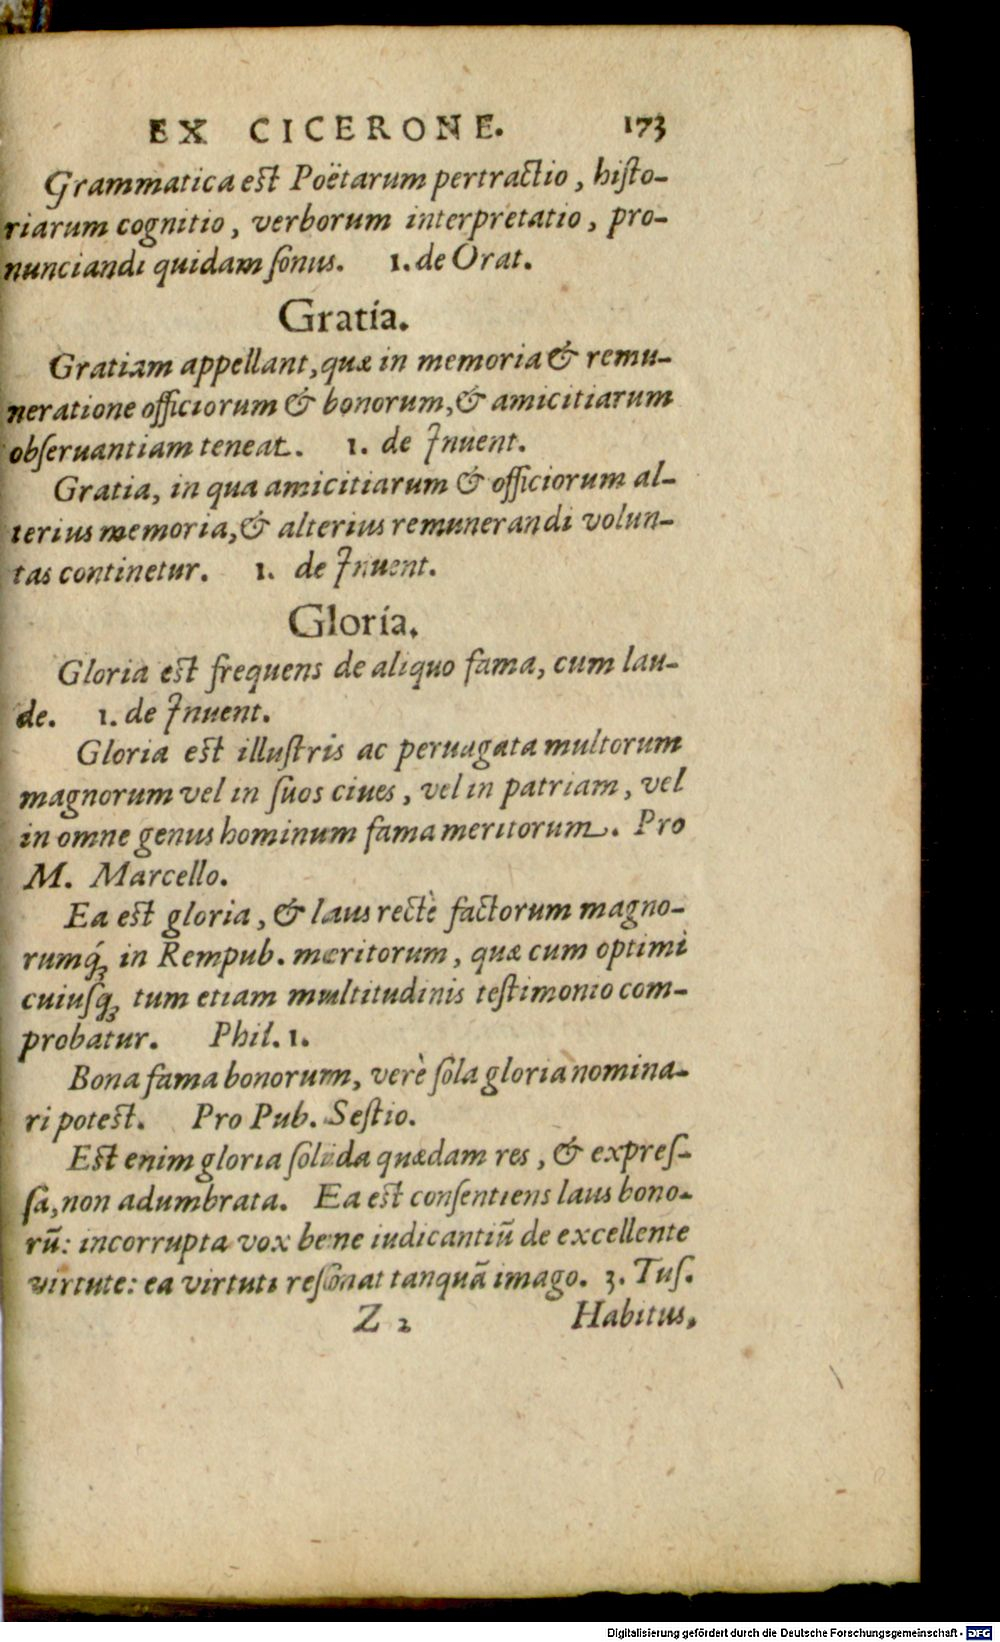 EX CICERONE. 173
Grammatica est Poëtarum pertractio, histo-
riarum cognitio, verborum interpretatio, pro-
nunciandi quidam sonus. 1. de Orat.
Gratia.
Gratiam appellant, quæ in memoria & remu-
neratione officiorum & bonorum, & amicitiarum
obseruantiam teneat. 1. de Inuent.
Gratia, in qua amicitiarum & officiorum al-
terius memoria, & alterius remunerandi volun-
tas continetur. 1. de Inuent.
Gloria.
Gloria est frequens de aliquo fama, cum lau-
de. 1. de Inuent.
Gloria est illustris ac peruagata multorum
magnorum vel in suos ciues, vel in patriam, vel
in omne genus hominum fama meritorum. Pro
M. Marcello.
Ea est gloria, & laus rectè factorum magno-
rumq́; in Rempub. meritorum, quæ cum optimi
cuiusq; tum etiam multitudinis testimonio com-
probatur. Phil. 1.
Bona fama bonorum, verè sola gloria nomina-
ri potest. Pro Pub. Sestio.
Est enim gloria solida quædam res, & expres-
sa, non adumbrata. Ea est consentiens laus bono-
rũ: incorrupta vox bene iudicantiũ de excellente
virtute: ea virtuti resonat tanquã imago. 3. Tus.
Z 2 Habitus,
Digitalisierung gefördert durch die Deutsche Forschungsgemeinschaft - DFG